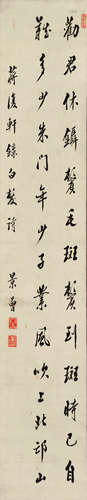 勸君休鑷鬢毛斑鬢到斑時已自
難多少朱門年少子業風吹上北邙山
蔣復軒鑷白髮詩
景曾